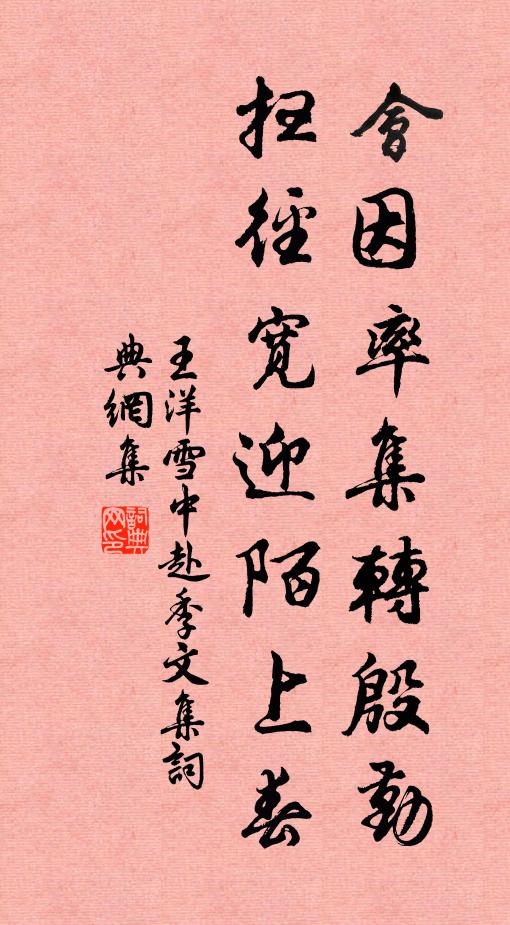 會因率集轉殷勤
扫徑寬迎陌上春
王洋雪中赴季文集詞
典網集
詞典網印